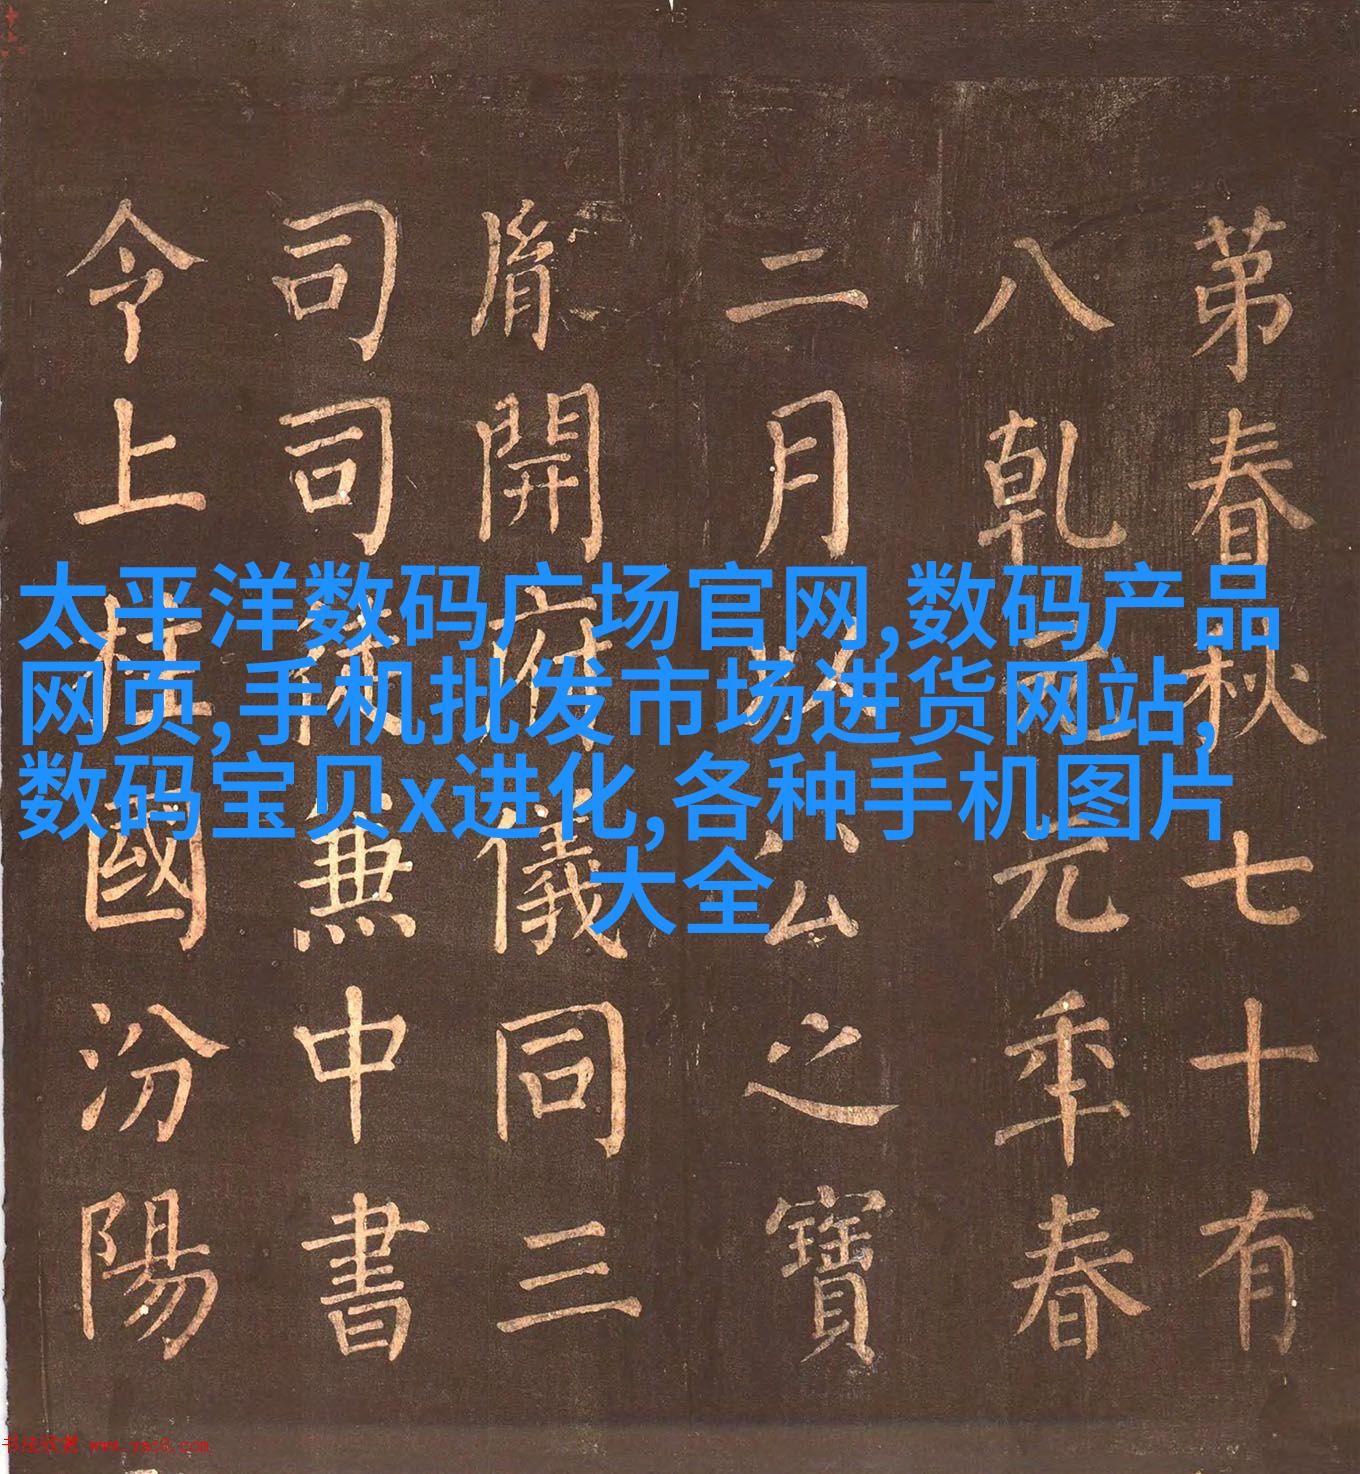 太平洋数码广场官网,数码产品
网页,手机批发市场进货网站,
数码宝贝x进化,各种手机图片
大全
苐春秋七十有
八乾元元年春
二月以公之寶
胤開府儀同三
司司徒兼中書
令上柱國汾陽
书法欣赏 www.yac8.com